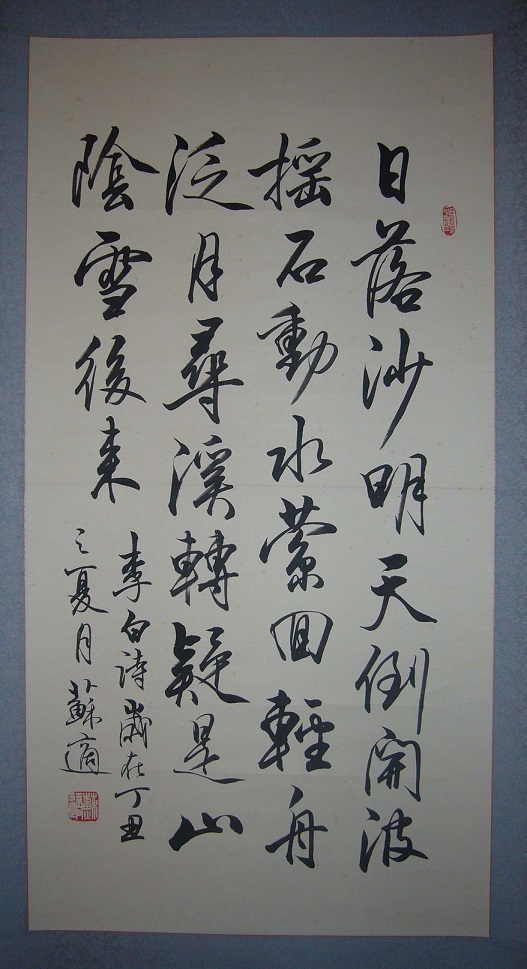 日落沙明天倒開波
摇石動水縈回輕舟
泛月尋溪轉疑是山
陰雪後来
李白詩歲在丁丑
之夏月蘇適